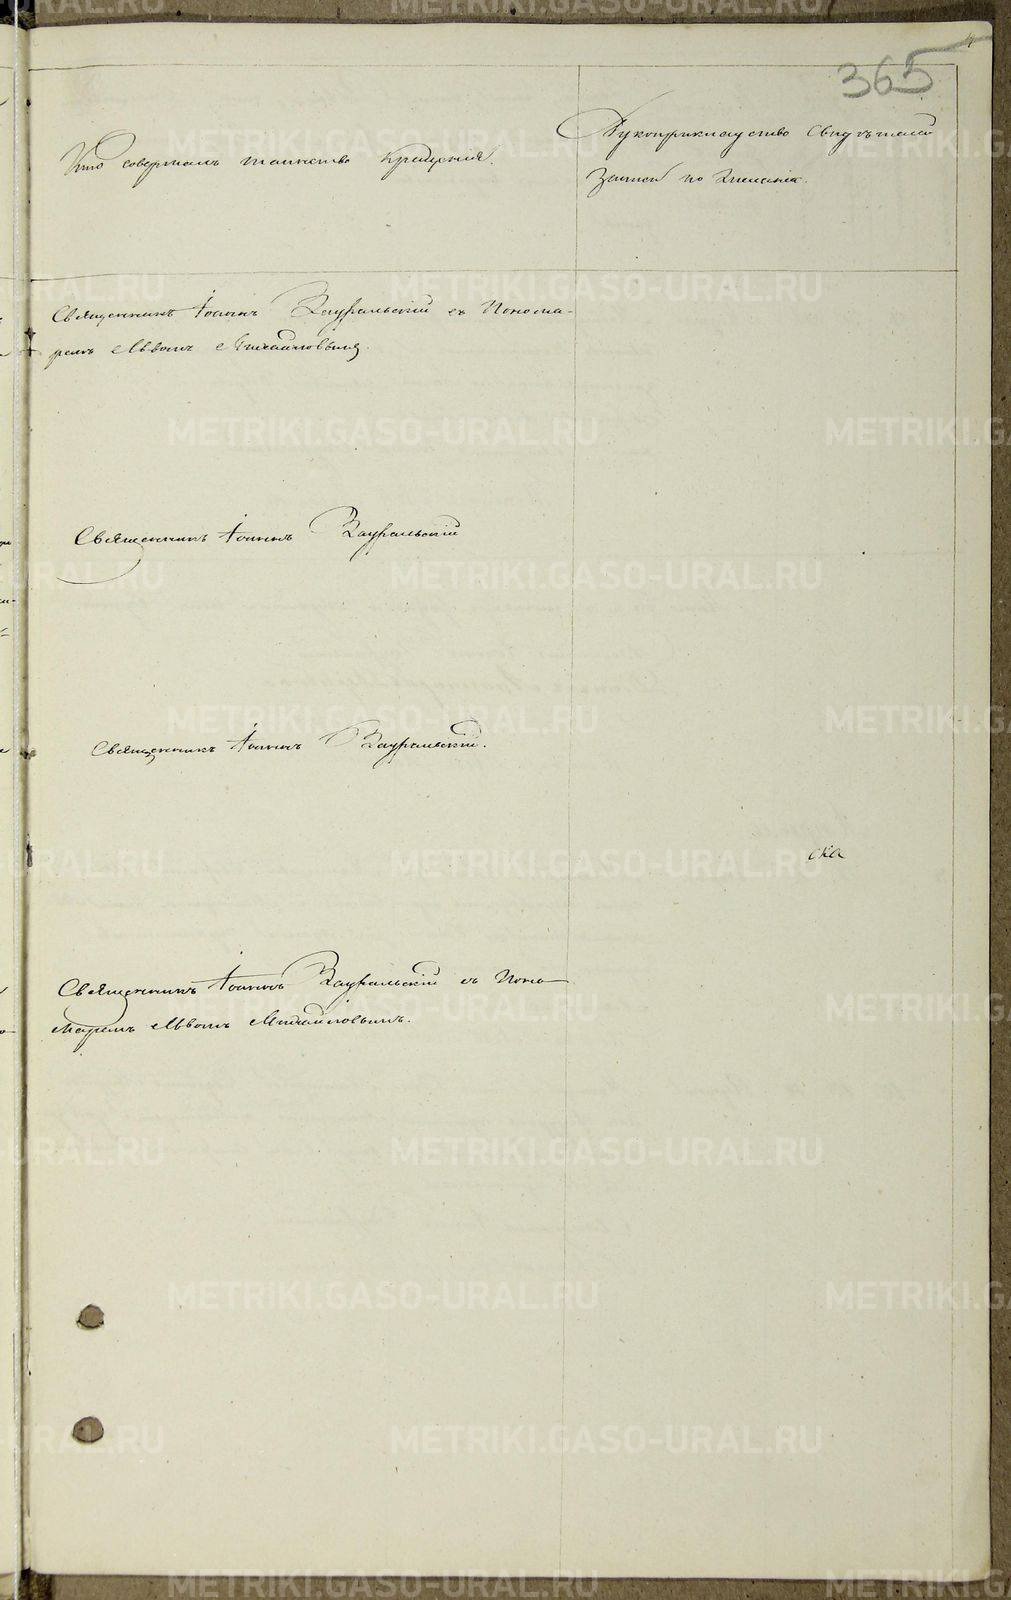 365
Кто совершалъ таинство крещенія.
Рукоприкладство свидѣтелей
записи по желанію.
Священникъ Іоаннъ Зауральскій съ Понома-
ремъ Львомъ Михайловымъ.
Священникъ Іоаннъ Зауральскій
Священникъ Іоаннъ Зауральскій.
ска
Священникъ Іоаннъ Зауральскій съ Поно-
маремъ Львомъ Михайловымъ.
METRIKI.GASO-URAL.RU